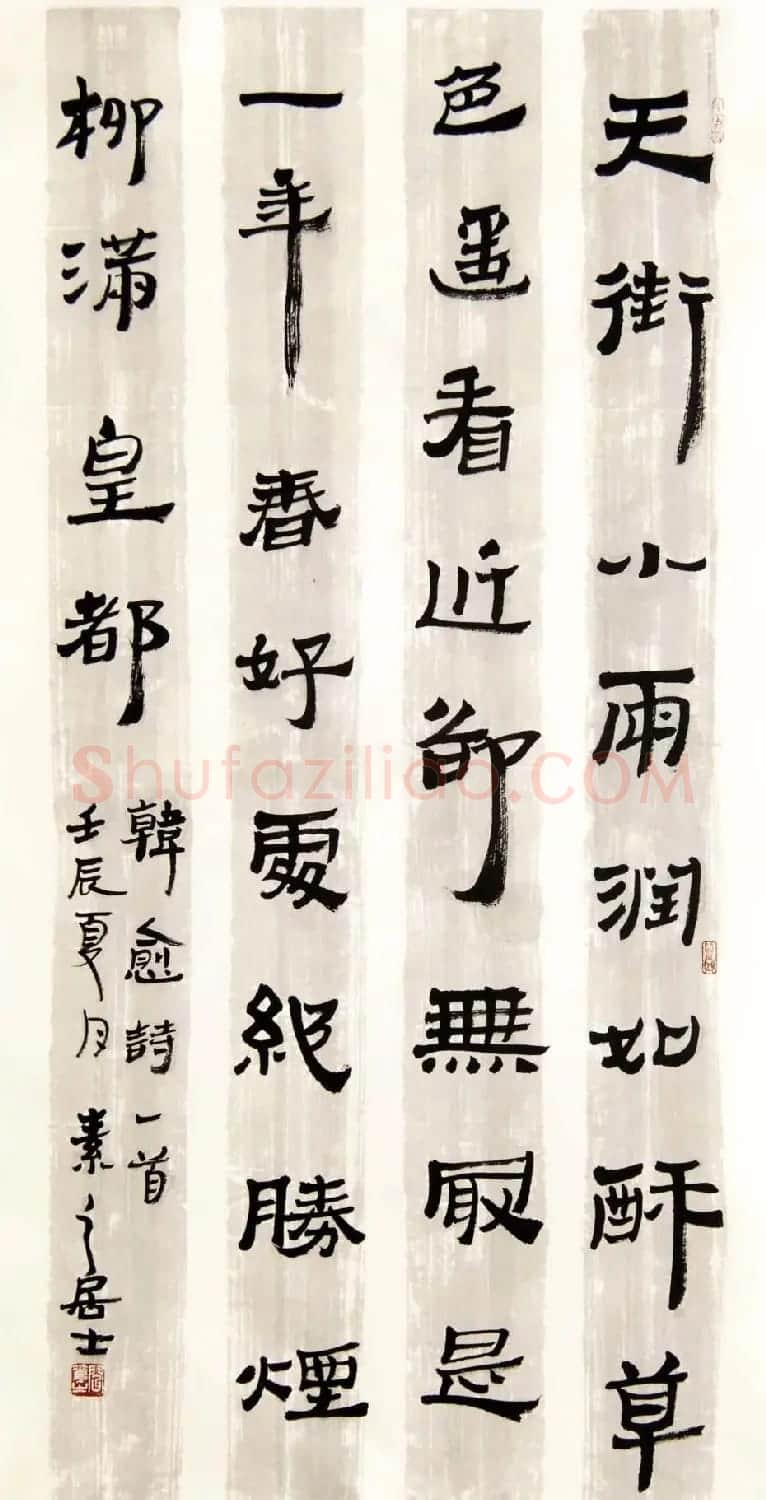 天街小雨润如酥草
色遥看近卻無最是
一年春好處絕勝煙
柳滿皇都
韓愈詩一首
壬辰夏月 素之居士
Shufaziliao.COM